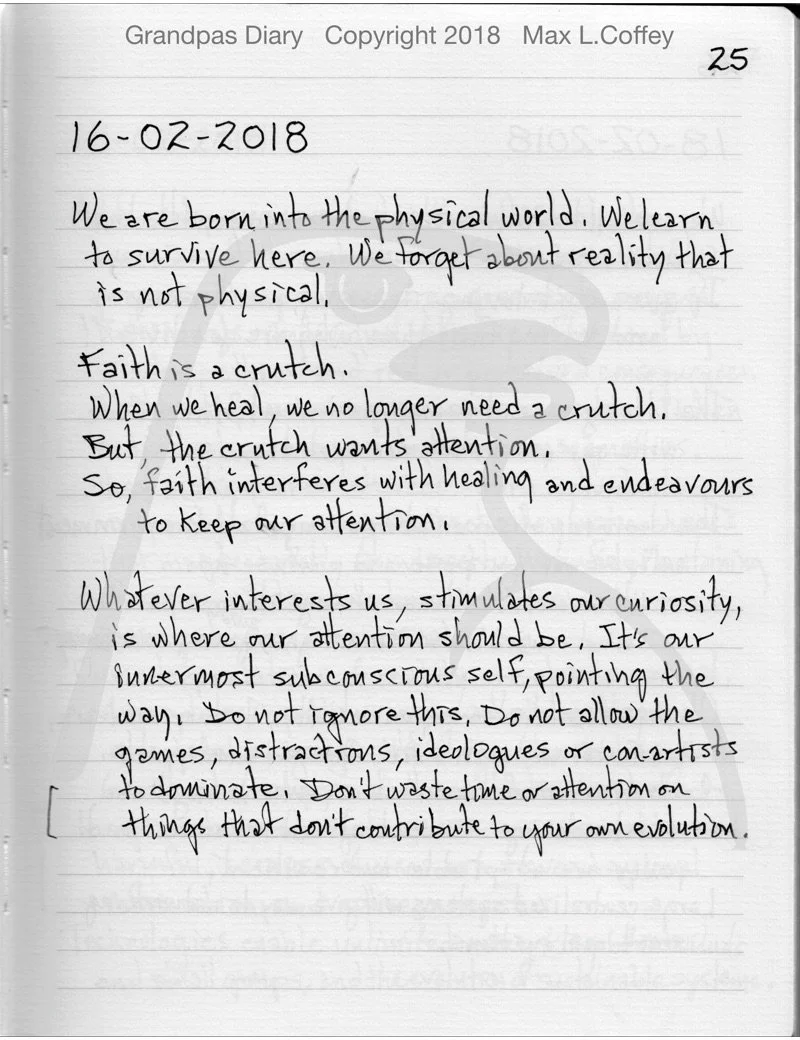 Grandpas Diary Copyright 2018 Max L.Coffey
25
16-02-2018
We are born into the physical world. We learn
to survive here. We forget about reality that
is not physical.
Faith is a crutch.
When we heal, we no longer need a crutch.
But, the crutch wants attention.
So, faith interferes with healing and endeavours
to keep our attention.
Whatever interests us, stimulates our curiosity,
is where our attention should be. It's our
innermost subconscious self, pointing the
way. Do not ignore this. Do not allow the
games, distractions, ideologues or con-artists
to dominate. Don't waste time or attention on
things that don't contribute to your own evolution.